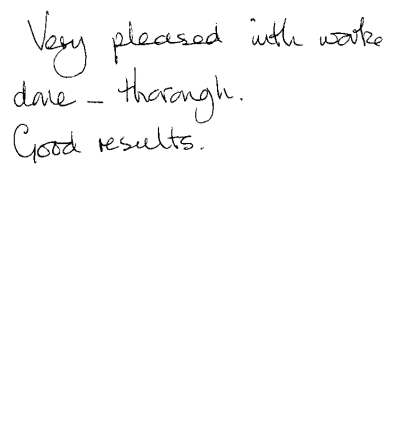 Very pleased with work
done - thorough.
Good results.